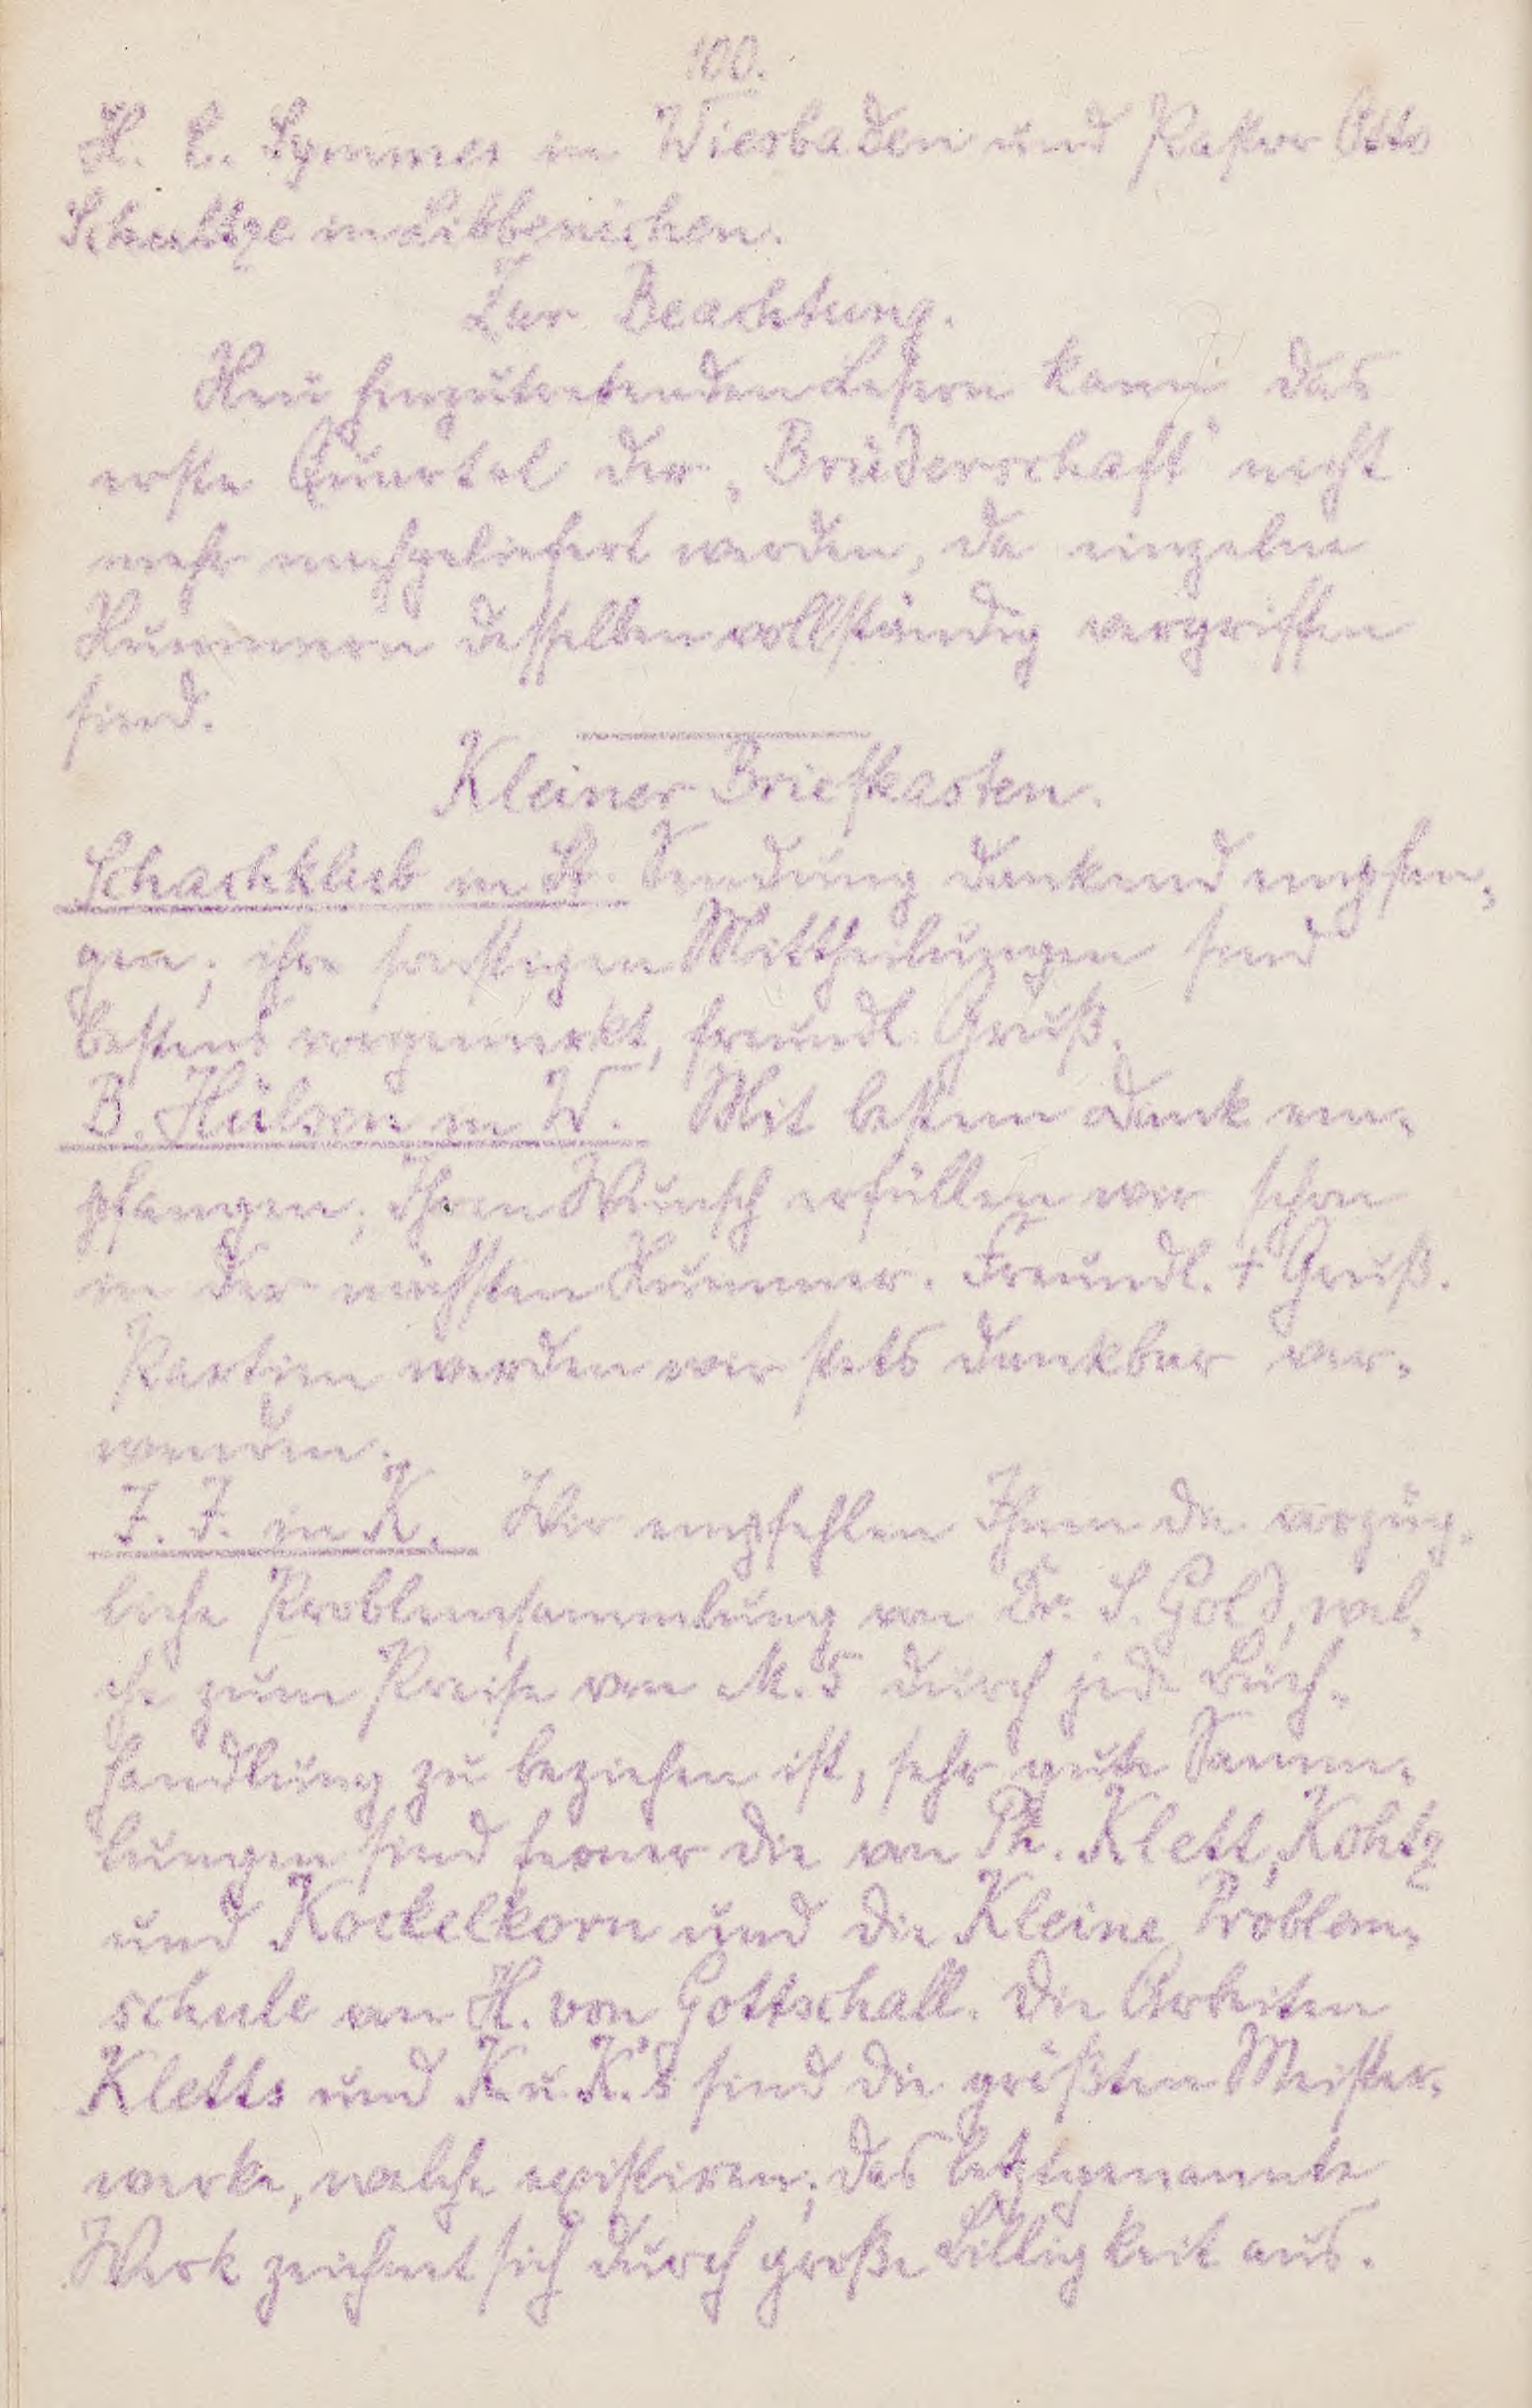 100.
H. C. Symmes in Wiesbaden und Pastor Otto
Schultze in Libbenichen.
Zur Beachtung.
Neu hinzutretenden Lesern kann das
erste Quartal der „Brüderschaft“ nicht
mehr nachgeliefert werden, da einzelne
Nummern desselben vollständig vergriffen
sind.
Kleiner Briefkasten.
Schachklub in St. Sendung dankend empfan-
gen; ihre sonstigen Mittheilungen sind
bestens vorgemerkt, freundl. Gruß.
B. Hülsen in W. Mit bestem Dank em-
pfangen; Ihren Wunsch erfüllen wir schon
in der nächsten Nummer. Freundl. + Gruß.
Partien werden wir stets dankbar ver-
wenden.
J. J. in K. Wir empfehlen Ihnen die vorzüg-
liche Problemsammlung von Dr. S. Gold, wel-
che zum Preise von M. 5 durch jede Buch-
handlung zu beziehen ist, sehr gute Samm-
lungen sind ferner die von Ph. Klett, Kohtz
und Kockelkorn und die Kleine Problem-
schule von H. von Gottschall. Die Arbeiten
Kletts und K. u. K.'s sind die größten Meister-
werke, welche existiren; das letztgenannte
Werk zeichnet sich durch große Billigkeit aus.